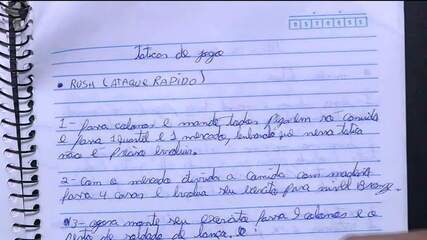 Taticas de jogo
• RUSH (ATAQUE RAPIDO)
1 - faça colonos e mande todos pegarem só comida
e faça 1 quartel e 1 mercado, lembrando que nessa tatica
não é preciso evoluir.
2 - Com o mercado divida a comida com madeira
para 4 casas e evolua seu exercito para nivel Bronze.
3 - agora monte seu exercito faça 9 colonos e o
resto de soldado de lança. e